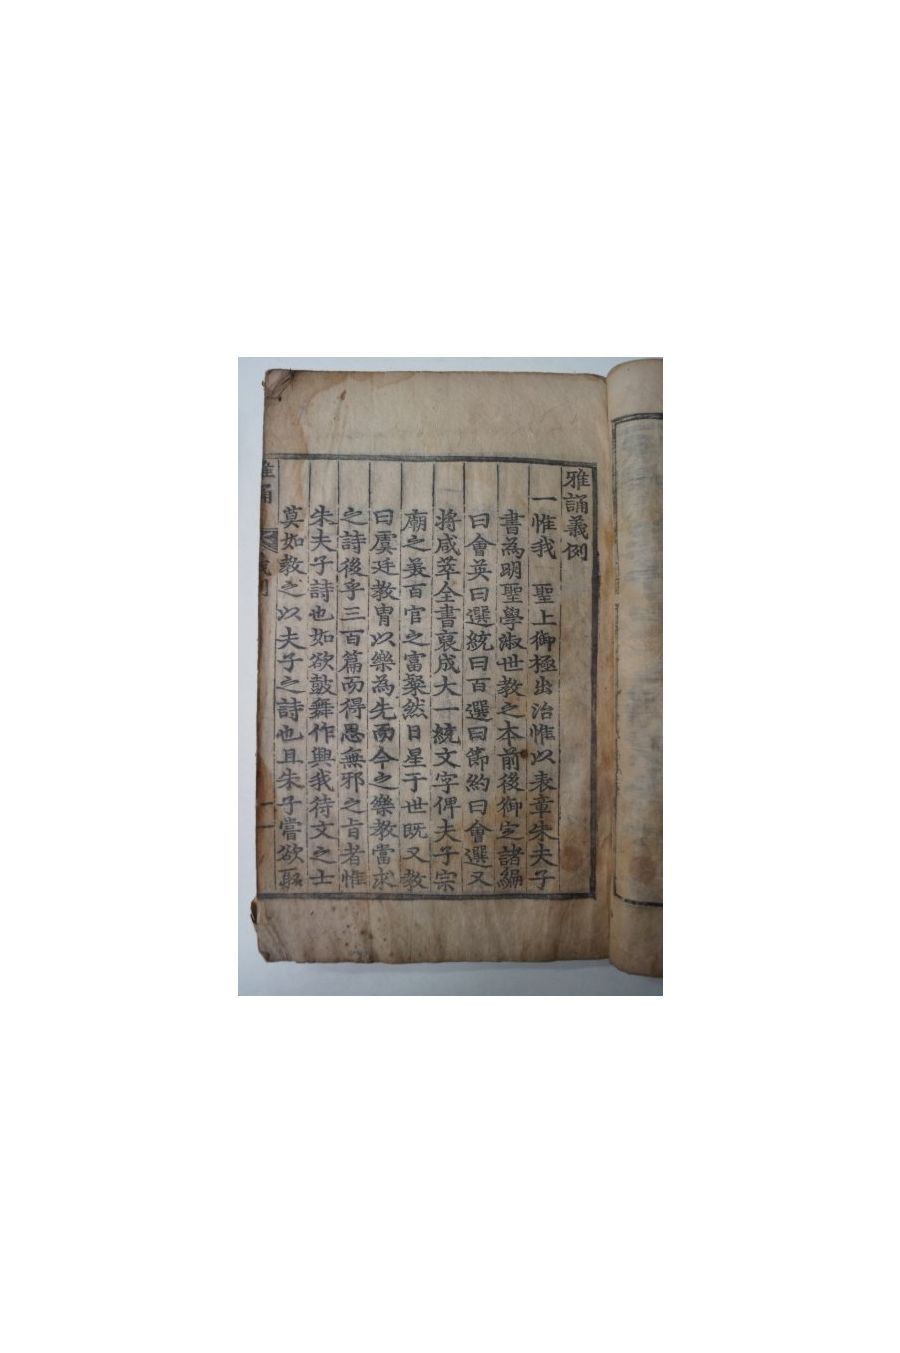 雅誦義例
一惟我 聖上御極出治惟以表章朱夫子
書為明聖學淑世教之本前後御定諸編
曰會英曰選統曰百選曰節約曰會選又
將咸萃全書裒成大一統文字俾夫子宗
廟之美百官之富粲然日星于世既又教
曰虞廷教冑以樂為先而今之樂教當求
之詩後乎三百篇而得思無邪之旨者惟
朱夫子詩也如欲鼓舞作興我待文之士
莫如教之以夫子之詩也且朱子嘗欲聚
雅誦 義例 一